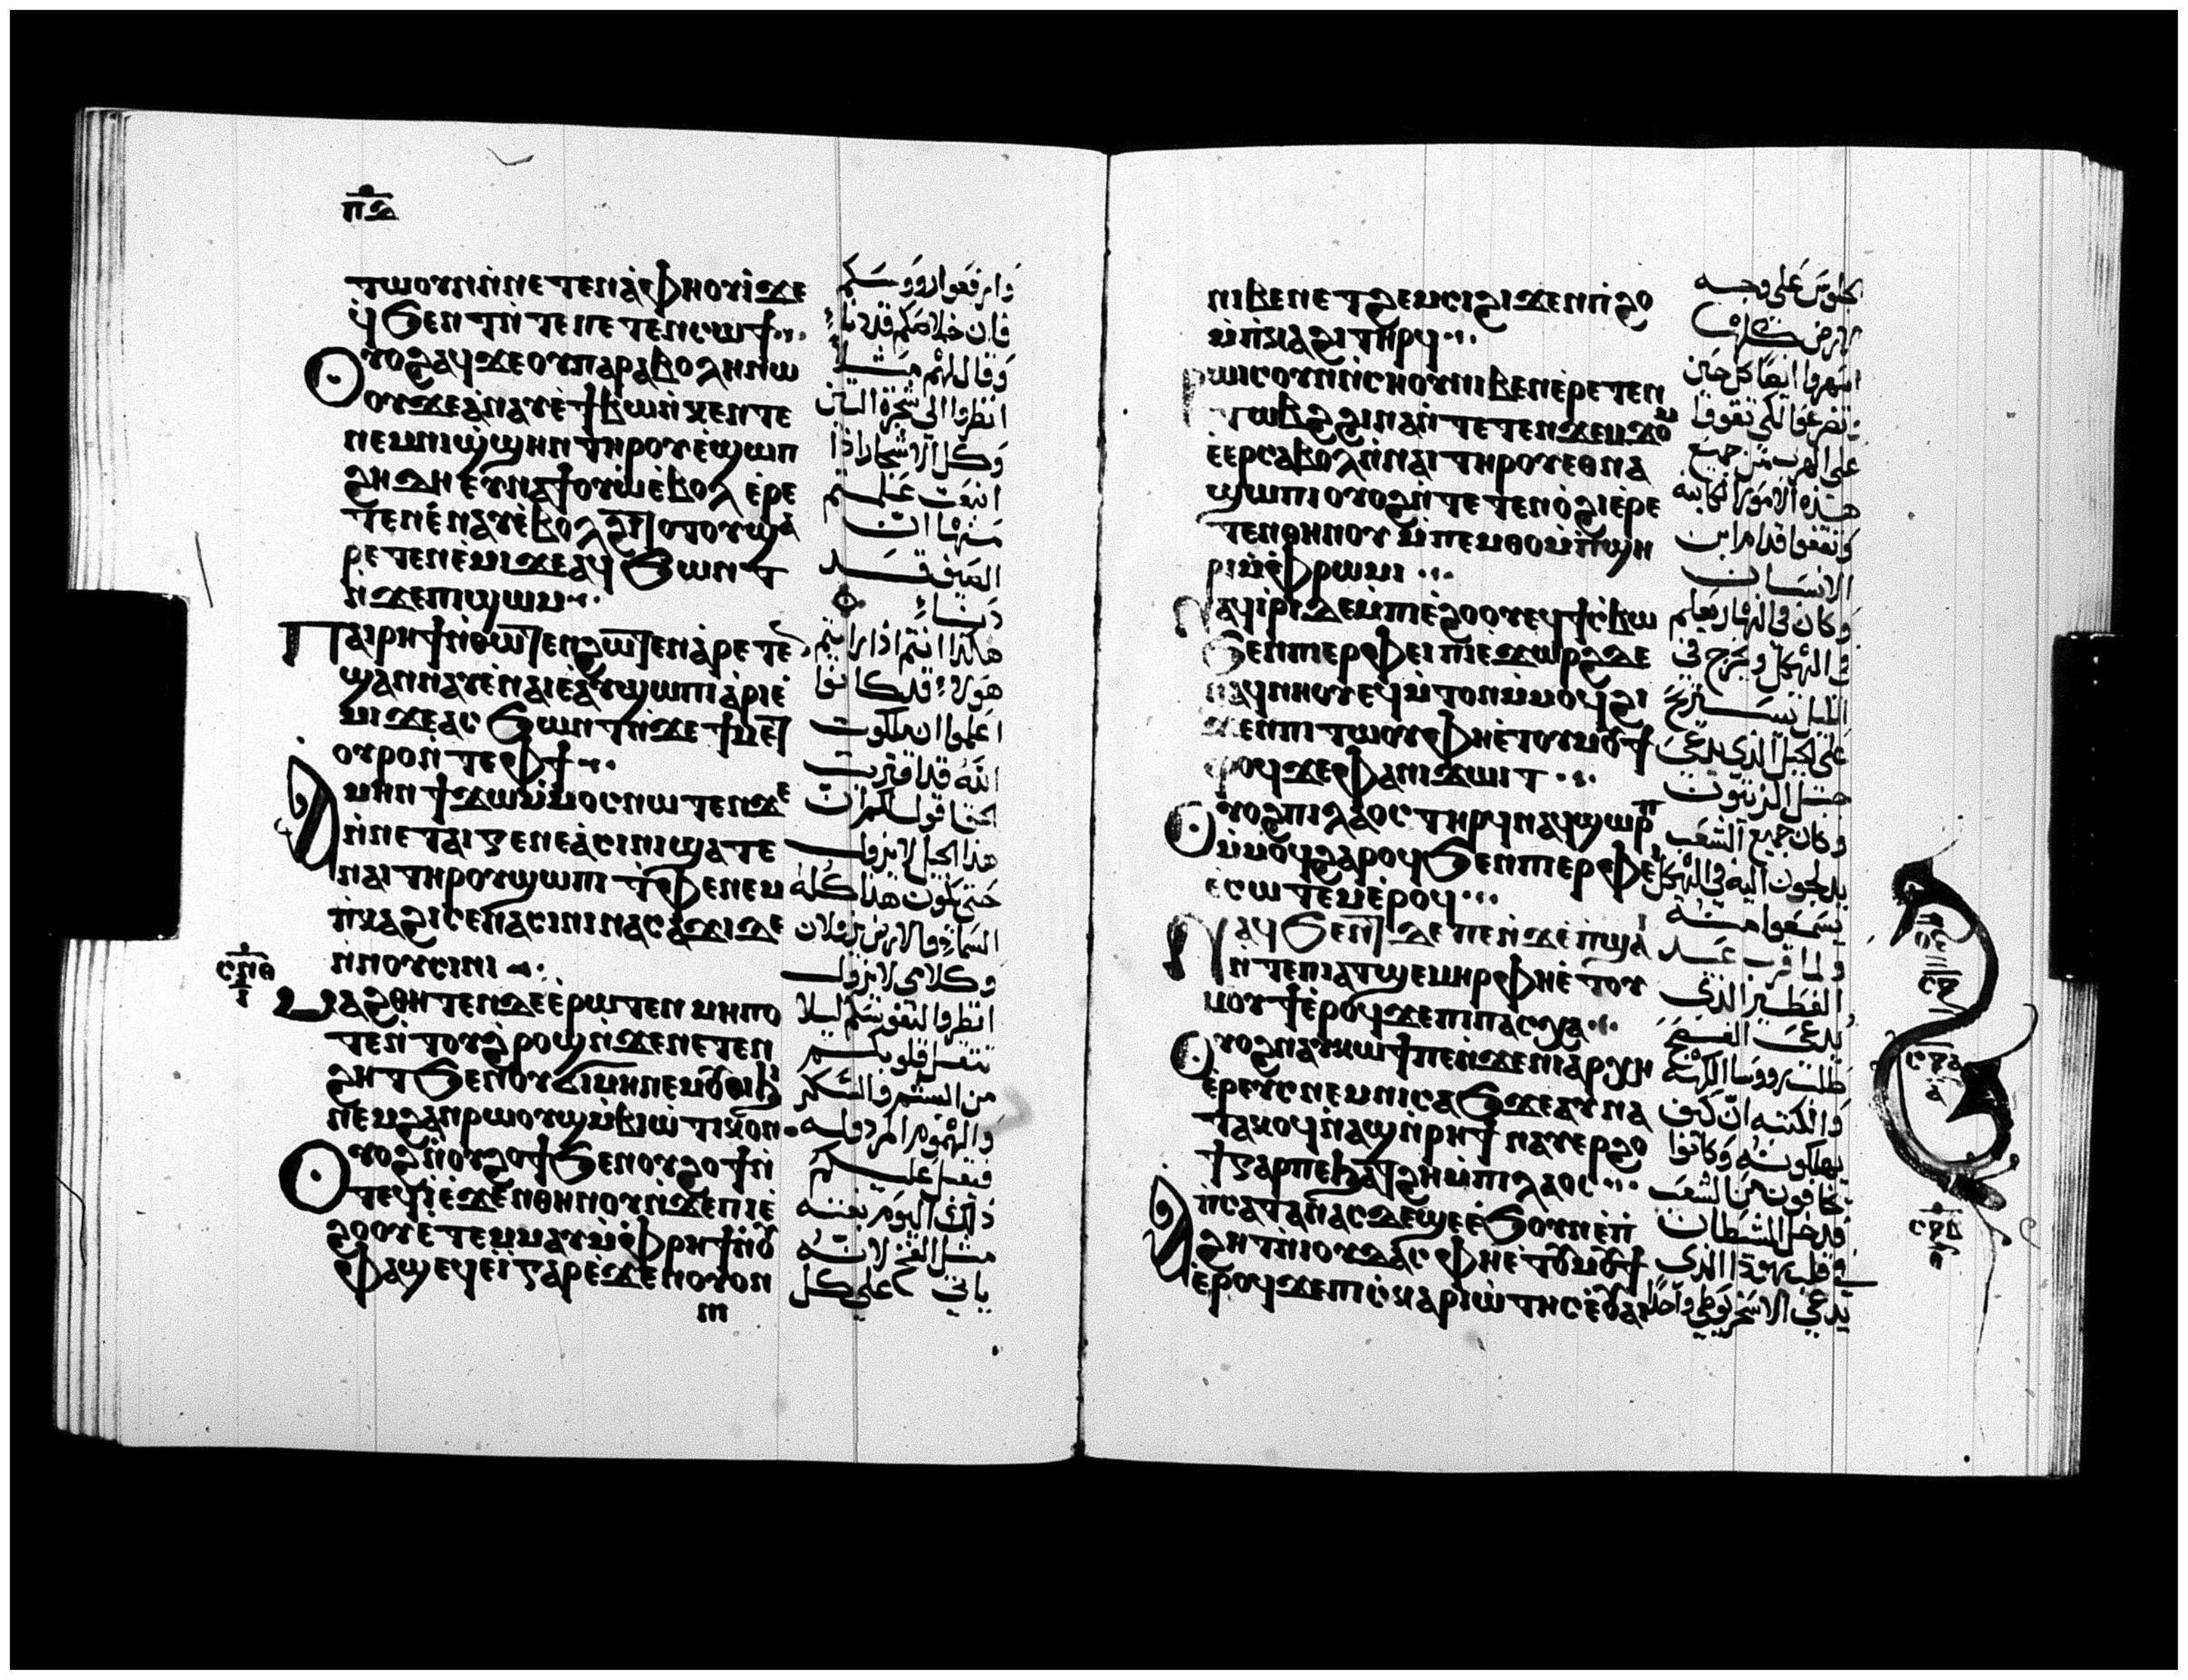 ⲡⲇ
ⲧⲱⲟⲩⲛⲛ̀ⲛⲉⲧⲉⲛⲁ̀ⲫⲏⲟⲩⲓ̀ϫⲉ
ϥ̀ϧⲉⲛⲧⲛ̀ⲧⲉⲛⲉⲧⲉⲛⲥⲱϯ
ⲟⲩⲟϩⲁϥϫⲉⲟⲩⲡⲁⲣⲁⲃⲟⲗⲏⲛⲱ
ⲟⲩϫⲉⲁ̀ⲛⲁⲩⲉ̀ϯⲃⲱⲛ̀ⲕⲉⲛⲧⲉ
ⲛⲉⲙⲛⲓϣ̀ϣⲏⲛⲧⲏⲣⲟⲩⲉ̀ϣⲱⲡ
ϩⲏⲇⲏⲉⲩⲛⲁϯⲟⲩⲱⲉ̀ⲃⲟⲗⲉ̀ⲣⲉ
ⲧⲉⲛⲉ̀ⲛⲁⲩⲉ̀ⲃⲟⲗϩⲓⲧⲟⲧⲟⲩϣⲁ̀
ⲣⲉⲧⲉⲛⲉ̀ⲙⲓϫⲉⲁϥϧⲱⲛⲧ
ⲛ̀ϫⲉⲡⲓϣⲱⲙ
ⲡⲁⲓⲣⲏϯⲛ̀ⲑⲱⲧⲉⲛϩⲱⲧⲉⲛⲁ̀ⲣⲉⲧⲉ
ϣⲁⲛⲛⲁⲩⲉ̀ⲛⲁⲓⲉ̀ⲁⲩϣⲱⲡⲓⲁ̀ⲣⲓⲉ̀
ⲙⲓϫⲉⲁⲥϧⲱⲛⲧⲛ̀ϫⲉϯⲙⲉⲧ
ⲟⲩⲣⲟⲛ̀ⲧⲉⲫϯ
ⲁⲙⲏⲛϯϫⲱⲙ̀ⲙⲟⲥⲛⲱⲧⲉⲛϫⲉ
ⲛ̀ⲛⲉⲧⲁⲓⲅⲉⲛⲉⲁ̀ⲥⲓⲛⲓϣⲁⲧⲉ
ⲛⲁⲓⲧⲏⲣⲟⲩϣⲱⲡⲓⲧ̀ⲫⲉⲛⲉⲙ
ⲡ̀ⲕⲁϩⲓⲥⲉⲛⲁⲥⲓⲛⲓⲛⲁⲥⲁϫⲓⲇⲉ
ⲛ̀ⲛⲟⲩⲥⲓⲛⲓ
ⲥⲛⲑ
ⲓ
ⲙⲁϩⲑⲏⲧⲉⲛⲇⲉⲉ̀ⲣⲱⲧⲉⲛⲙⲏⲡⲟ
ⲧⲉⲛ̀ⲧⲟⲩϩ̀ⲣⲟϣⲛ̀ϫⲉⲛⲉⲧⲉⲛ
ϩⲏⲧϧⲉⲛⲟⲩϭⲓⲙⲏⲛⲉⲙⲟⲩⲑⲓϧⲓ
ⲛⲉⲙϩⲁⲛⲣⲱⲟⲩϣⲙ̀ⲃⲓⲱⲧⲓⲕⲟⲛ
ⲟⲩⲟϩⲛ̀ⲟⲩϩⲟϯϧⲉⲛⲟⲩϩⲟϯⲛ̀
ⲧⲉϥⲓ̀ⲉ̀ϫⲉⲛⲑⲏⲛⲟⲩⲛ̀ϫⲉⲡⲓⲉ̀
ϩⲟⲟⲩⲉⲧⲉⲙⲙⲁⲩⲙ̀ⲫⲣⲏϯⲛ̀ⲟⲩ
ⲫⲁϣⲉϥⲉⲓ̀ⲅⲁⲣⲉ̀ϫⲉⲛⲟⲩⲟⲛ
ⲛⲓ
وارفعوا رووسكم
فان خلاصكم قد دنا
وقال لهم مثلا
انظروا الى شجرة التين
وكل الاشجار اذا
اينعت علمتم
منها ان
الصيف قد
دنا
هكذا انتم اذا رايتم
هولاء قد كانوا
اعلموا ان ملكوت
الله قد اقتربت
الحق اقول لكم ان
هذا الجيل لا يزول
حتى يكون هذا كله
السما والارض يزولان
وكلامي لا يزول
انظروا لنفوسكم ليلا
تثقل قلوبكم
من الشبع والسكر
والهموم
فيقبل عليكم
ذلك اليوم بغتة
مثل الفخ لانه
ياتي على كل
ⲛⲓⲃⲉⲛⲉⲧϩⲉⲙⲥⲓϩⲓϫⲉⲛⲡ̀ϩⲟ
ⲙ̀ⲡ̀ⲕⲁϩⲓⲧⲏⲣϥ
ⲣⲱⲓⲥⲟⲩⲛⲛ̀ⲥⲏⲟⲩⲛⲓⲃⲉⲛⲉ̀ⲣⲉⲧⲉⲛ
ⲧⲱⲃϩϩⲓⲛⲁⲛ̀ⲧⲉⲧⲉⲛϫⲉⲙϫⲟⲙ
ⲉ̀ⲉⲣⲥⲁⲃⲟⲗⲛ̀ⲛⲁⲓⲧⲏⲣⲟⲩⲉⲑⲛⲁ
ϣⲱⲡⲓⲟⲩⲟϩⲛ̀ⲧⲉⲧⲉⲛⲟ̀ϩⲓⲉ̀ⲣⲉ
ⲧⲉⲛⲑⲏⲛⲟⲩⲙ̀ⲡⲉⲙⲑⲟⲙ̀ⲡ̀ϣⲏ
ⲣⲓⲙ̀ⲫⲣⲱⲙⲓ
ⲛⲁϥⲓ̀ⲣⲓⲇⲉⲙ̀ⲡⲓⲉ̀ϩⲟⲟⲩⲉϥϯⲥ̀ⲃⲱ
ϧⲉⲛⲡⲓⲉⲣⲫⲉⲓⲡⲓⲉ̀ϫⲱⲣϩⲇⲉ
ⲛⲁϥⲛⲏⲟⲩⲉϥⲙ̀ⲧⲟⲛⲙ̀ⲙⲟϥϩⲓ
ϫⲉⲛⲡⲓⲧⲱⲟⲩⲫⲏⲉ̀ⲧⲟⲩⲙⲟⲩϯ
ⲉ̀ⲣⲟϥϫⲉⲫⲁⲛⲓϫⲱⲓⲧ
ⲟⲩⲟϩⲡⲓⲗⲁⲟⲥⲧⲏⲣϥⲛⲁϥϣⲱⲣⲡ
ⲙ̀ⲙⲟϥϩⲁⲣⲟϥϧⲉⲛⲡⲓⲉⲣⲫⲉⲓ
ⲉ̀ⲥⲱⲧⲉⲙⲉ̀ⲣⲟϥ
ⲛⲁϥϧⲉⲛⲧⲇⲉⲡⲉⲛ̀ϫⲉⲡ̀ϣⲁⲓ
ⲛ̀ⲧⲉⲛⲓⲁⲧϣⲉⲙⲏⲣⲫⲏⲉ̀ⲧⲟⲩ
ⲙⲟⲩϯⲉ̀ⲣⲟϥϫⲉⲡⲓⲡⲁⲥⲭⲁ
ⲟⲩⲟϩⲛⲁⲩⲕⲱϯⲡⲉⲛ̀ϫⲉⲛⲓⲁⲣⲭⲏ
ⲉ̀ⲣⲉⲩⲥⲛⲉⲙⲛⲓⲥⲁϧϫⲉⲁⲩⲛⲁ
ⲧⲁⲕⲟϥⲛ̀ⲁϣⲛ̀ⲣⲏϯⲛⲁⲩⲉⲣϩⲟ
ϯⲅⲁⲣⲡⲉϧⲁⲧϩⲏⲙ̀ⲡⲓⲗⲁⲟⲥ
ⲁⲡ̀ⲥⲁⲧⲁⲛⲁⲥⲇⲉϣⲉⲉ̀ϧⲟⲩⲛⲉ̀ⲡ̀
ϩⲏⲧⲛ̀ⲓⲟⲩⲇⲁⲥⲫⲏⲉ̀ⲧⲟⲩⲙⲟⲩϯ
ⲉ̀ⲣⲟϥϫⲉⲡⲓⲥ̀ⲕⲁⲣⲓⲱ̀ⲧⲏⲥⲉ̀ⲟⲩⲁⲓ
الجلوس على وجه
الارض كلها
اسهروا ايضا كل حين
وتضرعوا لكي تقووا
على الهرب من جميع
هذه الامور الكاينه
وتقفوا قدام ابن
الانسان
وكان في النهار يعلم
في الهيكل ويخرج في
الليل يستريح
على الجبل الذي يدعى
جبل الزيتون
وكان جميع الشعب
يدلجون اليه في الهيكل
يسمعوا منه
ولما قرب عيد
الفطير الذي
يدعى الفسح
طلب رووسا الكهنه
والكتبه ان كيف
يهلكونه وكانوا
يخافون من الشعب
فدخل الشيطان
في قلب يهوذا الذي
يدعى الاسخريوطي واحدا
ⲟⲉ
ⲥⲝ
ⲥⲝⲁ
ⲁ
ⲥⲝⲃ